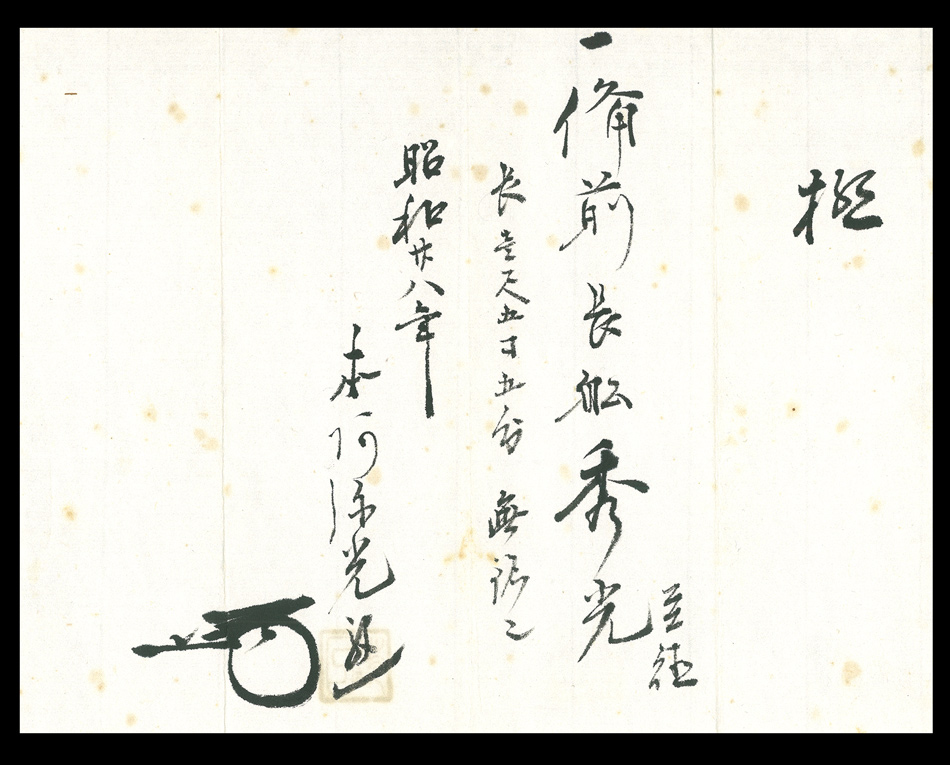 極
一 備前長船秀光
至徳
長壱尺五寸五分 無銘
昭和廿八年
本阿弥光遜